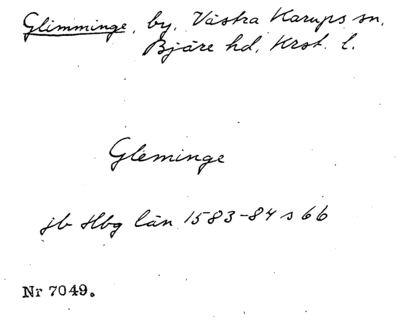 Glimminge, by, Västra Karups sn,
Bjäre hd, Krst. l.
Gleminge
jb Hbg län 1583-84 s 66
Nr 7049.